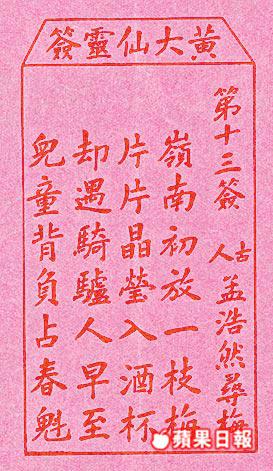 黃大仙靈簽
第十三簽
古人 孟浩然尋梅
嶺南初放一枝梅
片片晶瑩入酒杯
却遇騎驢人早至
兒童背負占春魁
蘋果日報